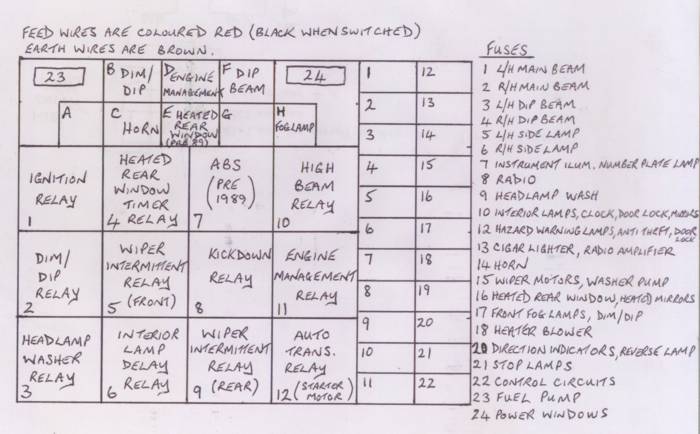 FEED WIRES ARE COLOURED RED (BLACK WHEN SWITCHED)
EARTH WIRES ARE BROWN.
23
B DIM/
DIP
D ENGINE
MANAGEMENT
F DIP
BEAM
24
A
C
HORN
E HEATED
REAR
WINDOW
(PRE 89)
G
H
FOGLAMP
IGNITION
RELAY
1
HEATED
REAR
WINDOW
TIMER
4 RELAY
ABS
(PRE
1989)
7
HIGH
BEAM
RELAY
10
DIM/
DIP
RELAY
2
WIPER
INTERMITTENT
RELAY
5 (FRONT)
KICKDOWN
RELAY
8
ENGINE
MANAGEMENT
RELAY
11
HEADLAMP
WASHER
RELAY
3
INTERIOR
LAMP
DELAY
6 RELAY
WIPER
INTERMITTENT
RELAY
9 (REAR)
AUTO
TRANS.
RELAY
12 (STARTER
MOTOR)
1 12
2 13
3 14
4 15
5 16
6 17
7 18
8 19
9 20
10 21
11 22
FUSES
1 L/H MAIN BEAM
2 R/H MAIN BEAM
3 L/H DIP BEAM
4 R/H DIP BEAM
5 L/H SIDE LAMP
6 R/H SIDE LAMP
7 INSTRUMENT ILUM. NUMBER PLATE LAMP
8 RADIO
9 HEADLAMP WASH
10 INTERIOR LAMPS, CLOCK, DOOR LOCK,
12 HAZARD WARNING LAMPS, ANTI THEFT, DOOR
LOCK
13 CIGAR LIGHTER, RADIO AMPLIFIER
14 HORN
15 WIPER MOTORS, WASHER PUMP
16 HEATED REAR WINDOW, HEATED MIRRORS
17 FRONT FOG LAMPS, DIM/DIP
18 HEATER BLOWER
20 DIRECTION INDICATORS, REVERSE LAMP
21 STOP LAMPS
22 CONTROL CIRCUITS
23 FUEL PUMP
24 POWER WINDOWS